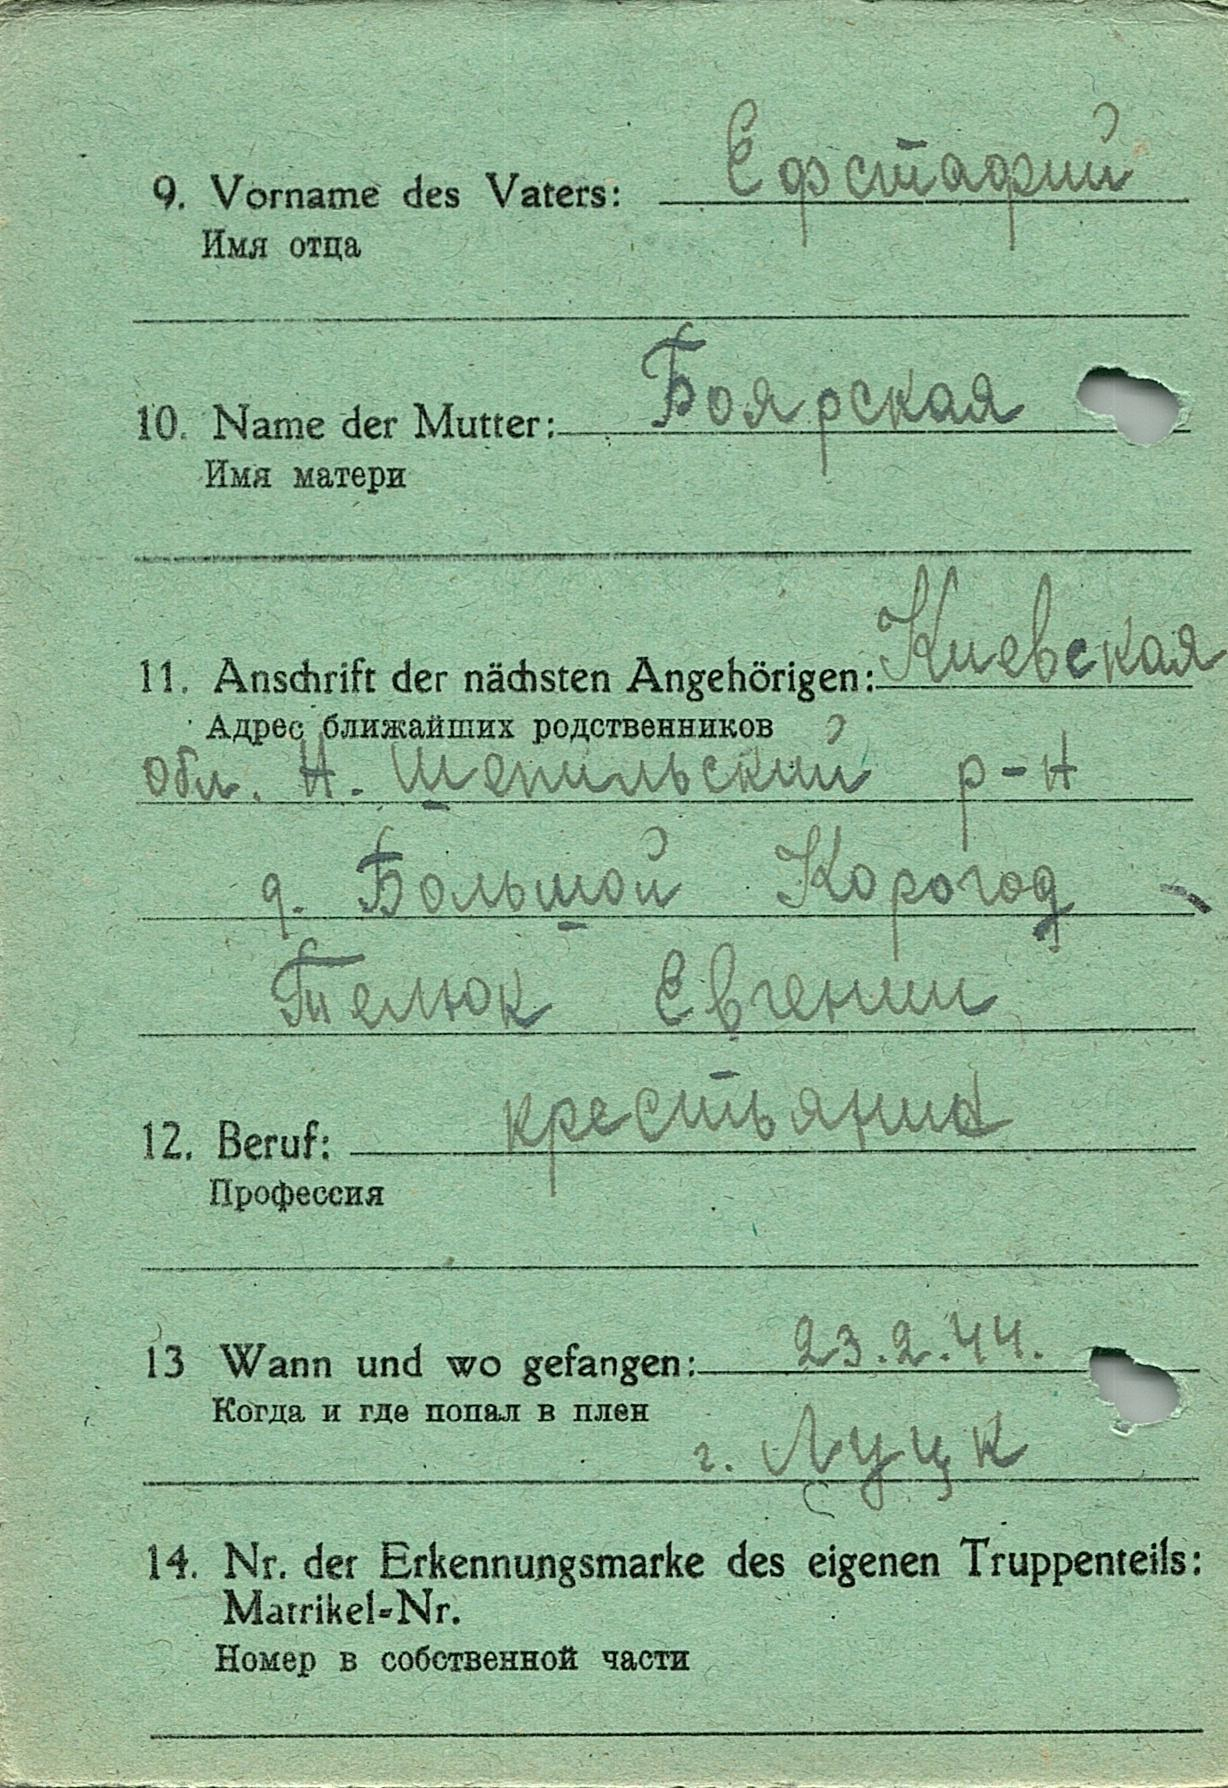 Ефстафий
9. Vorname des Vaters:
Имя отца
Боярская
10. Name der Mutter:
Имя матери
Киевская
11. Anschrift der nächsten Angehörigen:
Адрес ближайших родственников
обл. Н. Шепильский р-н
д. Большой Корогод
Телюк Евгении
крестьянин
12. Beruf:
Профессия
13 Wann und wo gefangen: 23.2.44.
Когда и где попал в плен
г. Луцк
14. Nr. der Erkennungsmarke des eigenen Truppenteils:
Matrikel-Nr.
Номер в собственной части